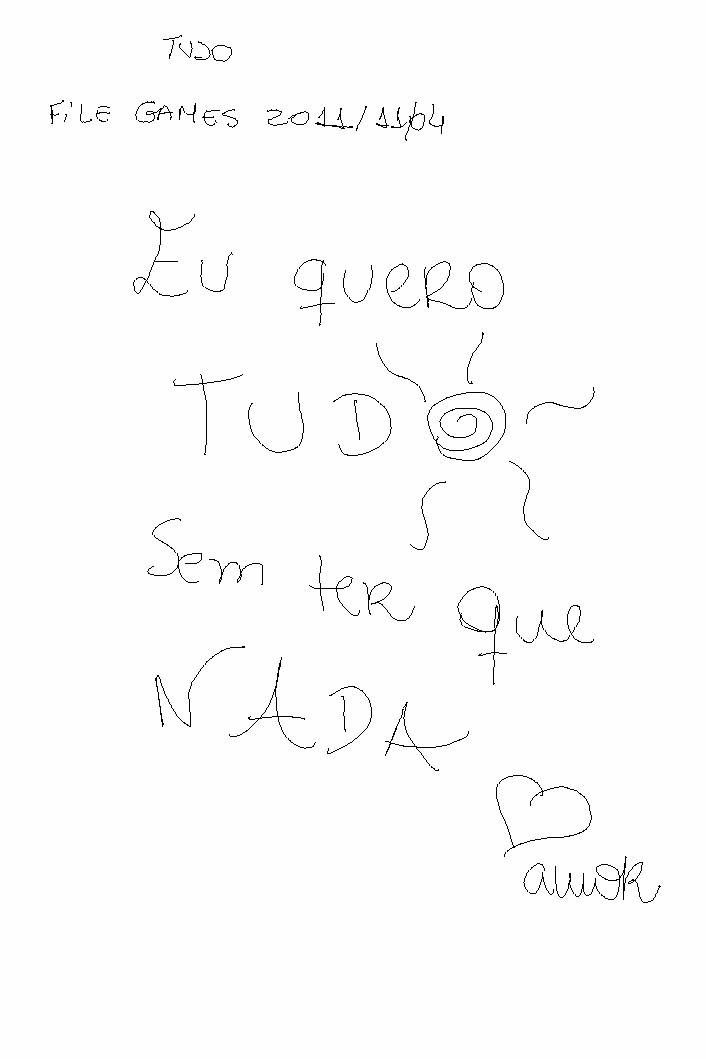 TUDO
FiLE GAMES 2011/11/04
Eu queRo
TUDO
Sem teR que
NADA
amoR